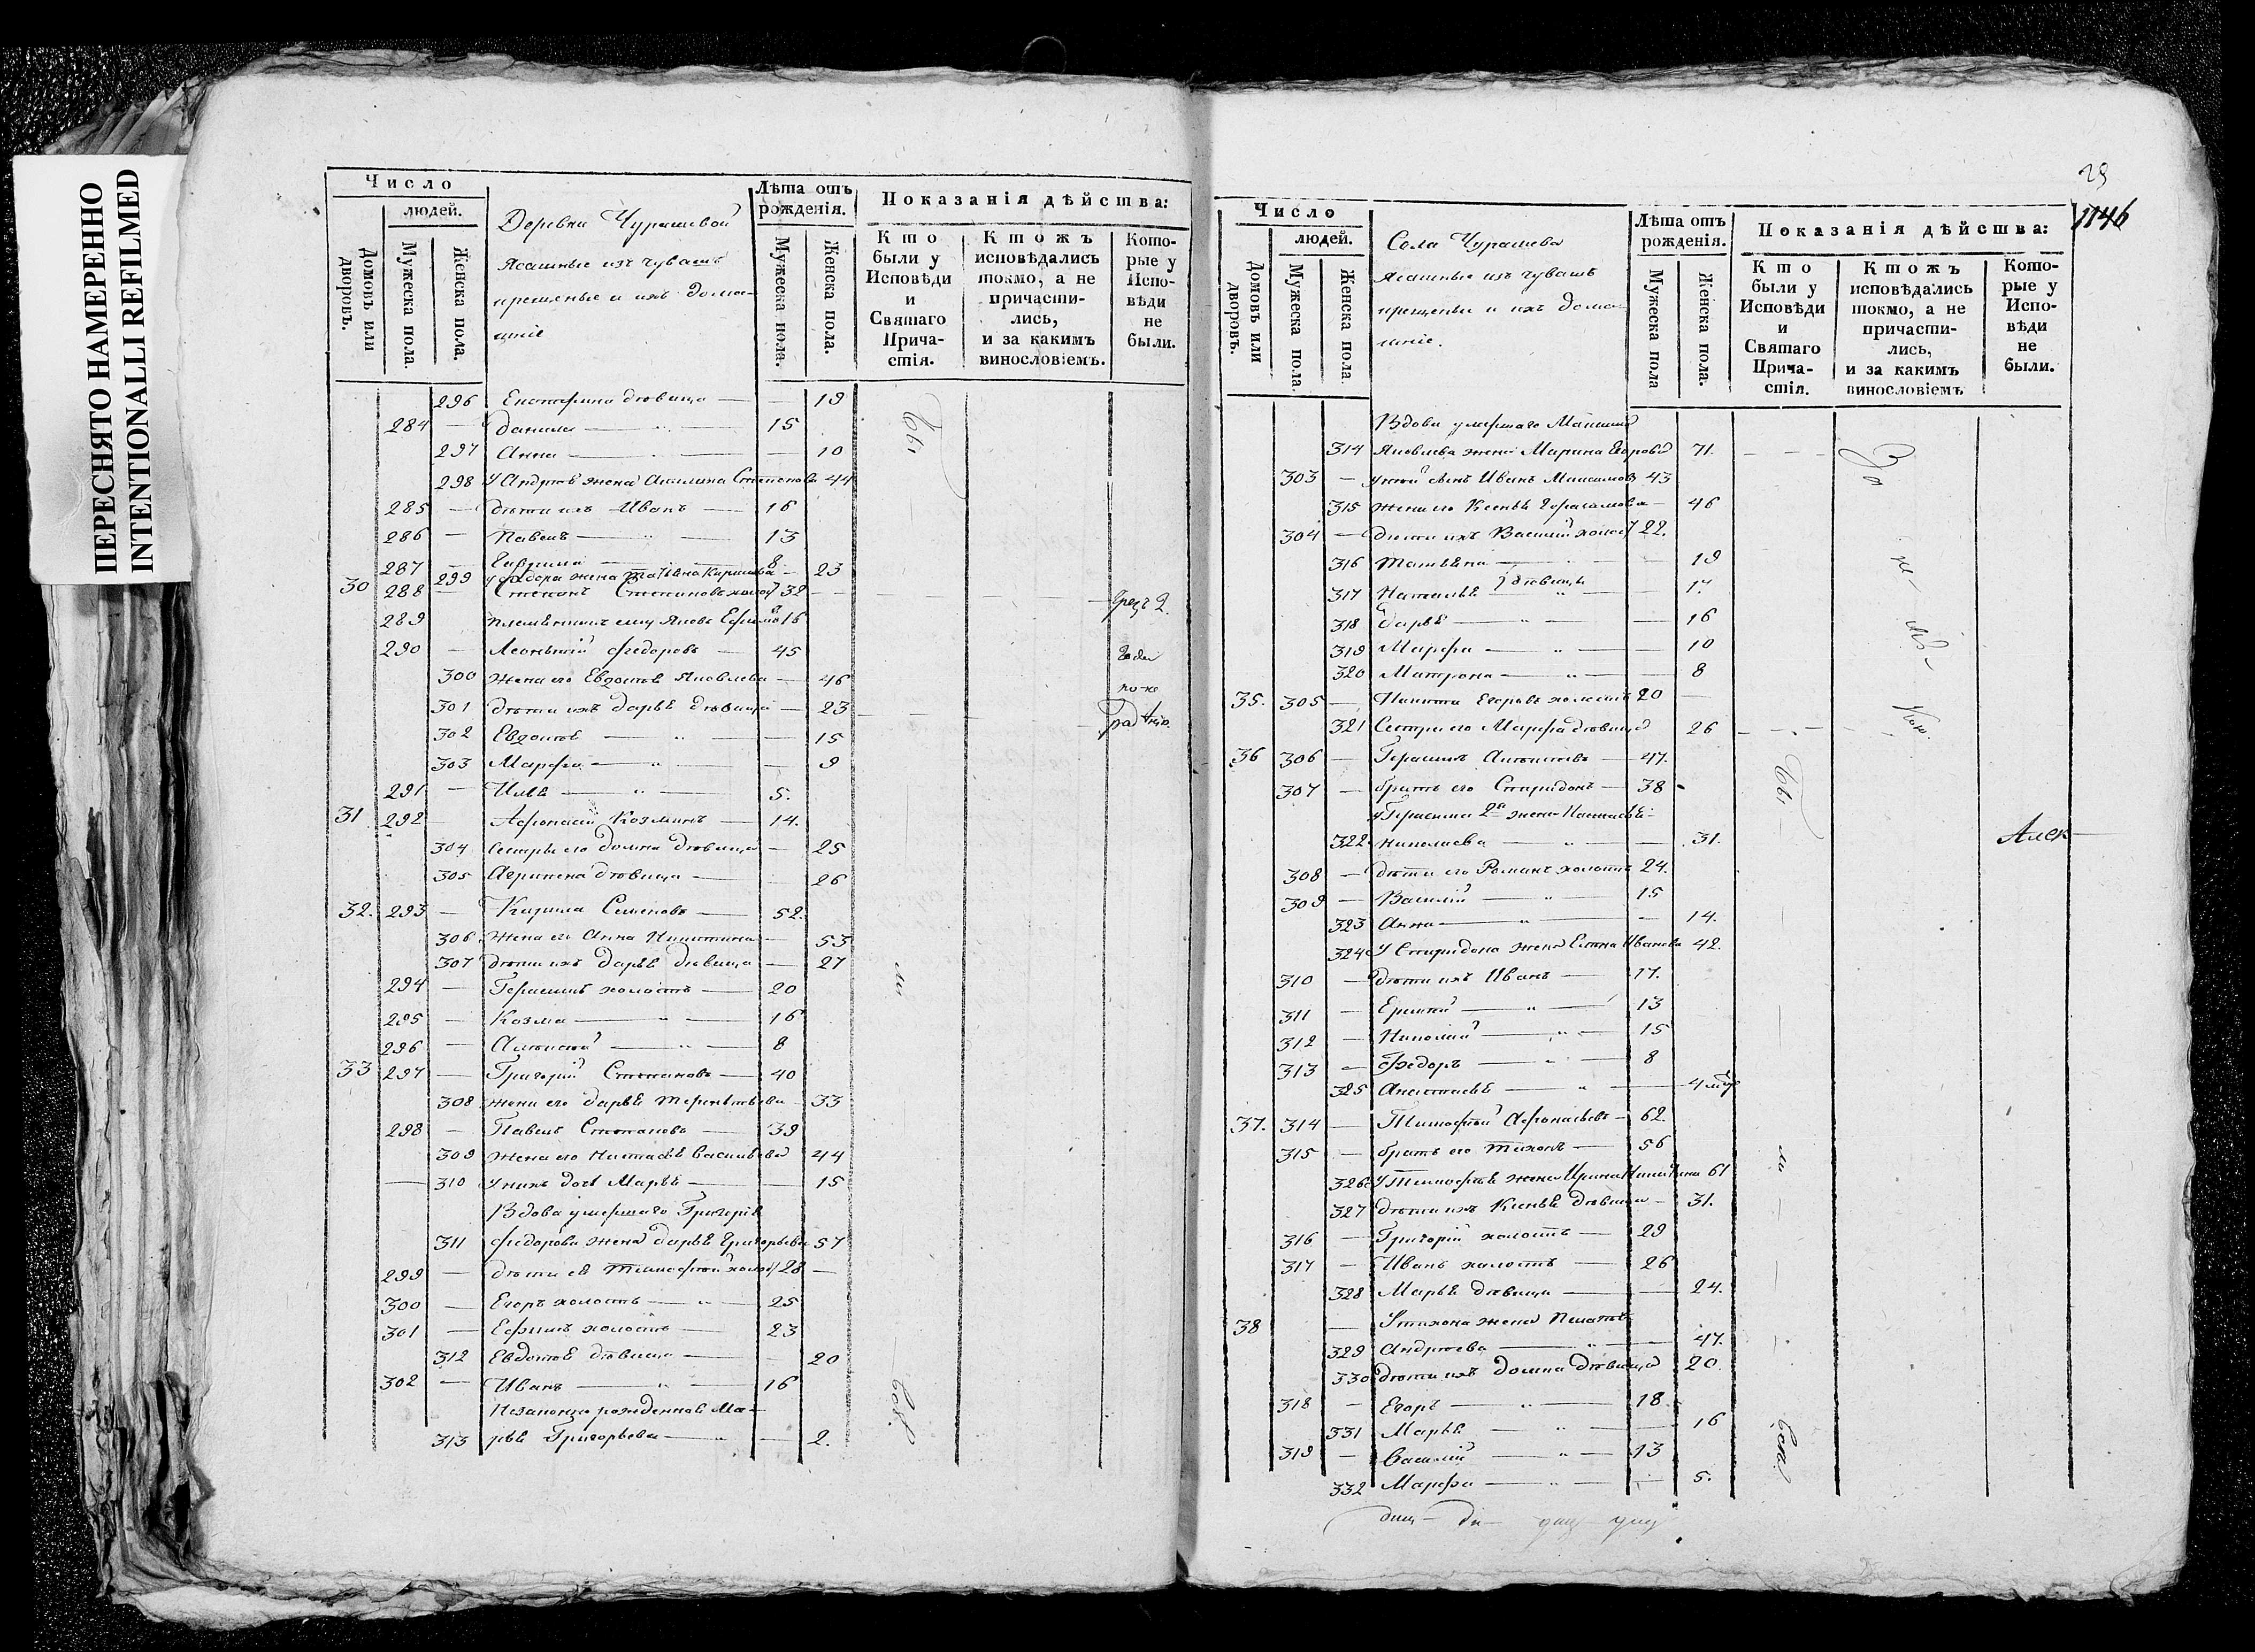 ПЕРЕСНЯТО НАМЕРЕННО
INTENTIONALLI REFILMED
Число
людей.
Домовъ или дворовъ.
Мужеска пола.
Женска пола.
Деревни Чурашевой
Ясашные изъ чувашъ
крещеные и ихъ дома-
шніе
Лѣта отъ рожденія.
Мужеска пола.
Женска пола.
Показанія дѣйства:
Кто были у Исповѣди и Святаго Прича-стія.
Ктожъ исповѣдались токмо, а не причасти-лись, и за какимъ винословіемъ.
Кото-рые у Испо-вѣди не были.
296 Екатерина дѣвица — — 19
284 — Данила — 15
297 Анна — — 10
298 У Андрея жена Акилина Степанова 44
285 — дѣти ихъ Иванъ — 16
286 — Павелъ — 13
287 — Гаврила — 8
299 У Федора жена Татьяна Кирилова — 23
30 288 — Степанъ Степановъ холос 32 —
289 племянникъ ему Яковъ Ефимовъ 16
290 — Леонтий Федоровъ — 45
300 Жена его Евдокія Яковлева — 46
301 дѣти ихъ Дарья дѣвица — 23
302 Евдокія — — 15
303 Марфа — — 9
291 — Илья — 5.
31 292 — Афонасій Козминъ — 14.
304 Сестры его Домна дѣвица — 25
305 Агрипена дѣвица — 26
32. 293 — Кирила Семеновъ — 52.
306 Жена его Анна Никитина — 53
307 дѣти ихъ Дарья дѣвица — 27
294 — Герасимъ холостъ — 20
295 — Козма — 16
296 — Алексей — 8
33 297 — Григорій Степановъ — 40
308 жена его Дарья Терентьева 33
298 — Павелъ Степановъ — 39
309 Жена его Настасья Васильева 44
— 310 У нихъ дочь Марья — — 15
Вдова умершаго Григорья
311 Федорова жена Дарья Григорьева 57
299 — дѣти ея Тимофей холос 28 —
300 — Егоръ холостъ — 25
301 — Ефимъ холостъ — 23
312 Евдокія дѣвица — 20
302 — Иванъ — 16
Незаконно рожденная Ма-
313 рья Григорьева — — 2.
29
1146
Число
людей.
Домовъ или дворовъ.
Мужеска пола.
Женска пола.
Села Чурашева
Ясашные изъ чувашъ
крещеные и ихъ дома-
шніе.
Лѣта отъ рожденія.
Мужеска пола
Женска пола.
Показанія дѣйства:
Кто были у Исповѣди и Святаго Прича-стія.
Ктожъ исповѣдались токмо, а не причасти-лись, и за какимъ винословіемъ
Кото-рые у Испо-вѣди не были.
Вдова умершаго Максима
314 Яковлева жена Марина Егорова 71.
303 — у ней сынъ Иванъ Максимовъ 43
315 жена его Ксенья Герасимова — 46
304 — дѣти ихъ Василій холос 22.
316 Татьяна — — 19
317 Наталья дѣвицы — 17.
318 Дарья — — 16
319 Марфа — — 10
320 Матрона — — 8
35. 305 — Никита Егоровъ холостъ 20 —
321 Сестра его Марфа дѣвица 26
36 306 — Герасимъ Алексеевъ — 47.
307 — братъ его Спиридонъ — 38
у Герасима 2я жена Настасья
322 Николаева — — 31.
308 — дѣти его Романъ холостъ 24.
309 — Василій — 15
323 Анна — — 14.
324 У Спиридона жена Елена Иванова 42.
310 — дѣти ихъ Иванъ — 17.
311 — — 13
312 — Николай — 15
313 — Федоръ — 8
325 Анастасья — — 4
37. 314 — Тимофей Афонасьевъ — 62.
315 — братъ его Тихонъ — 56
326 У Тимофея жена Ирина Никитина 61
327 дѣти ихъ Ксенья дѣвица — 31.
316 — Григорій холостъ — 29
317 — Иванъ холостъ — 26
328 Марья дѣвица — 24.
38 — У Тихона жена
329 Андреева — — 47.
330 дѣти ихъ Домна дѣвица 20.
318 — Егоръ — 18
331 Марья — — 16
319 — Василій — 13
332 Марфа — — 5.
Алек